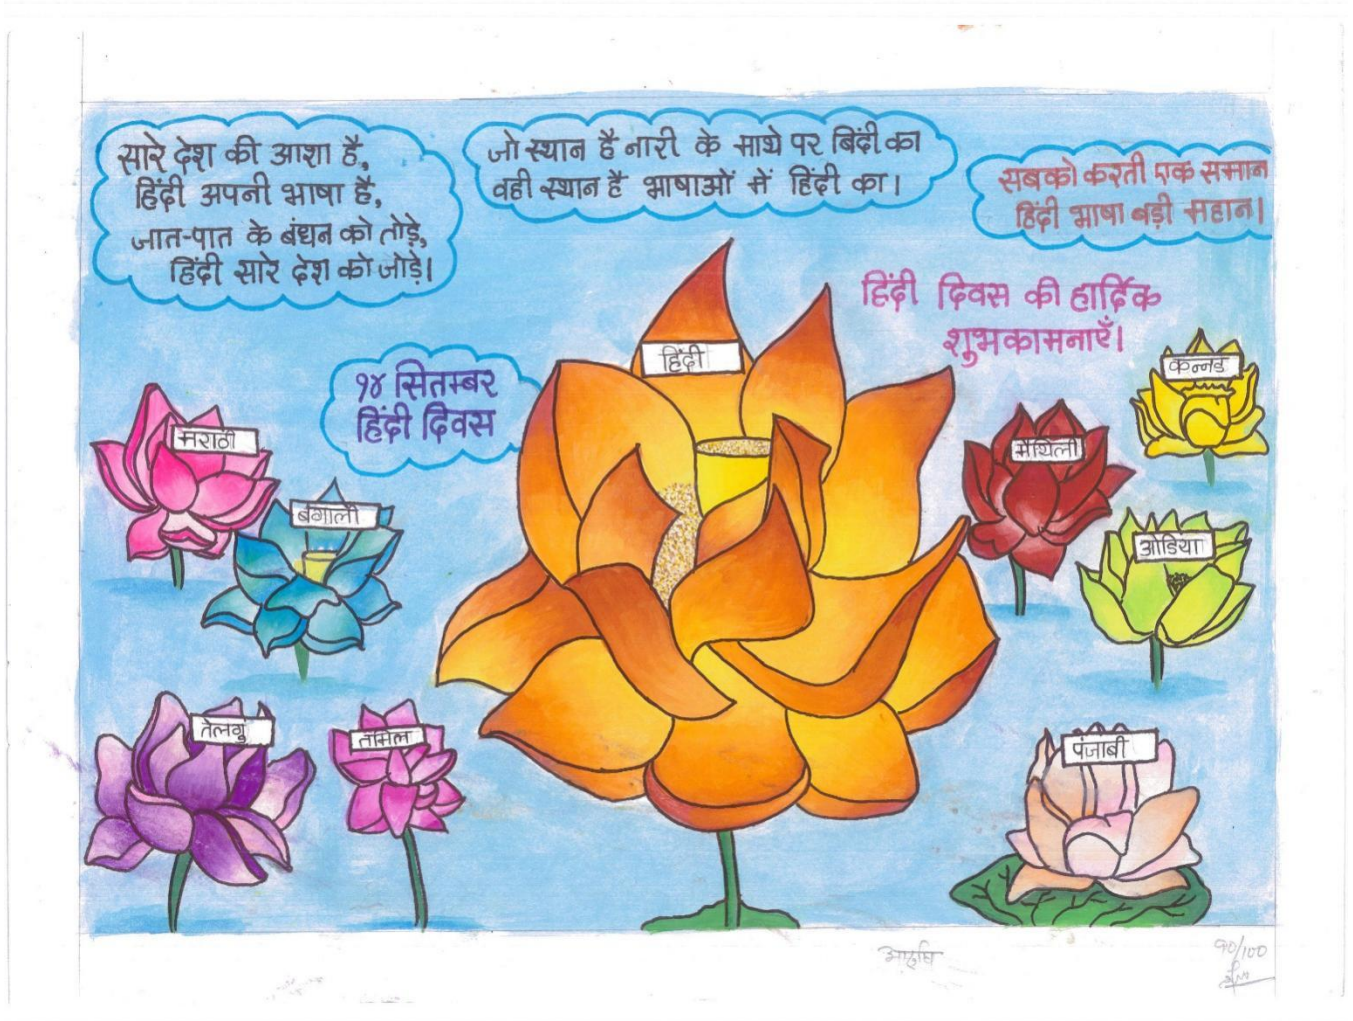 सारे देश की आशा है,
हिंदी अपनी भाषा है,
जात-पात के बंधन को तोड़े,
हिंदी सारे देश को जोड़े।
जो स्थान है नारी के माथे पर बिंदी का
वही स्थान है भाषाओं में हिंदी का।
सबको करती एक समान
हिंदी भाषा बड़ी महान।
हिंदी दिवस की हार्दिक
शुभकामनाएँ।
१४ सितम्बर
हिंदी दिवस
हिंदी
मराठी
बंगाली
तेलगु
तमिल
कन्नड
मैथिली
ओडिया
पंजाबी
90/100